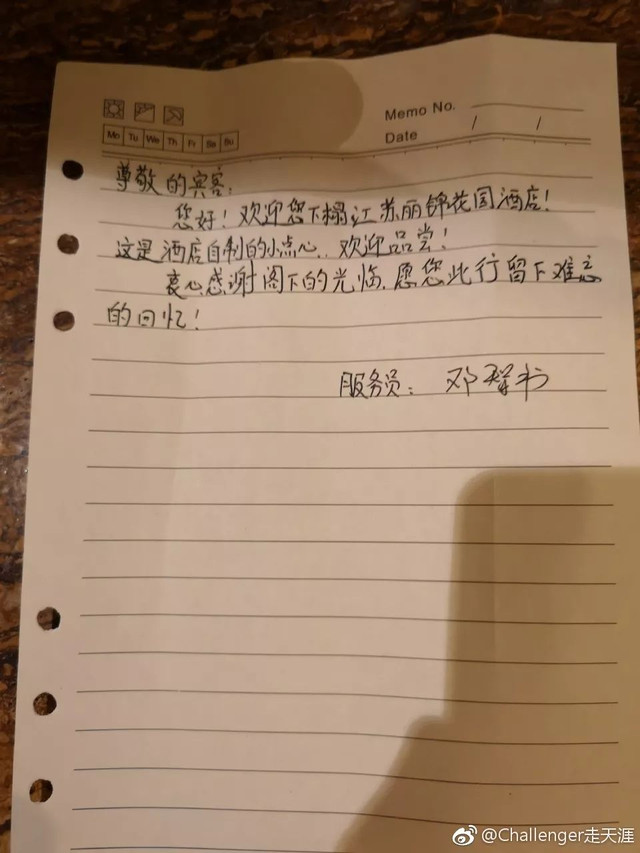 Memo No.
Mo Tu We Th Fr Sa Su
Date / /
尊敬的宾客:
您好!欢迎您下榻江苏丽锦花园酒店!
这是酒店自制的小点心,欢迎品尝!
衷心感谢阁下的光临,愿您此行留下难忘
的回忆!
服务员: 邓
@Challenger走天涯